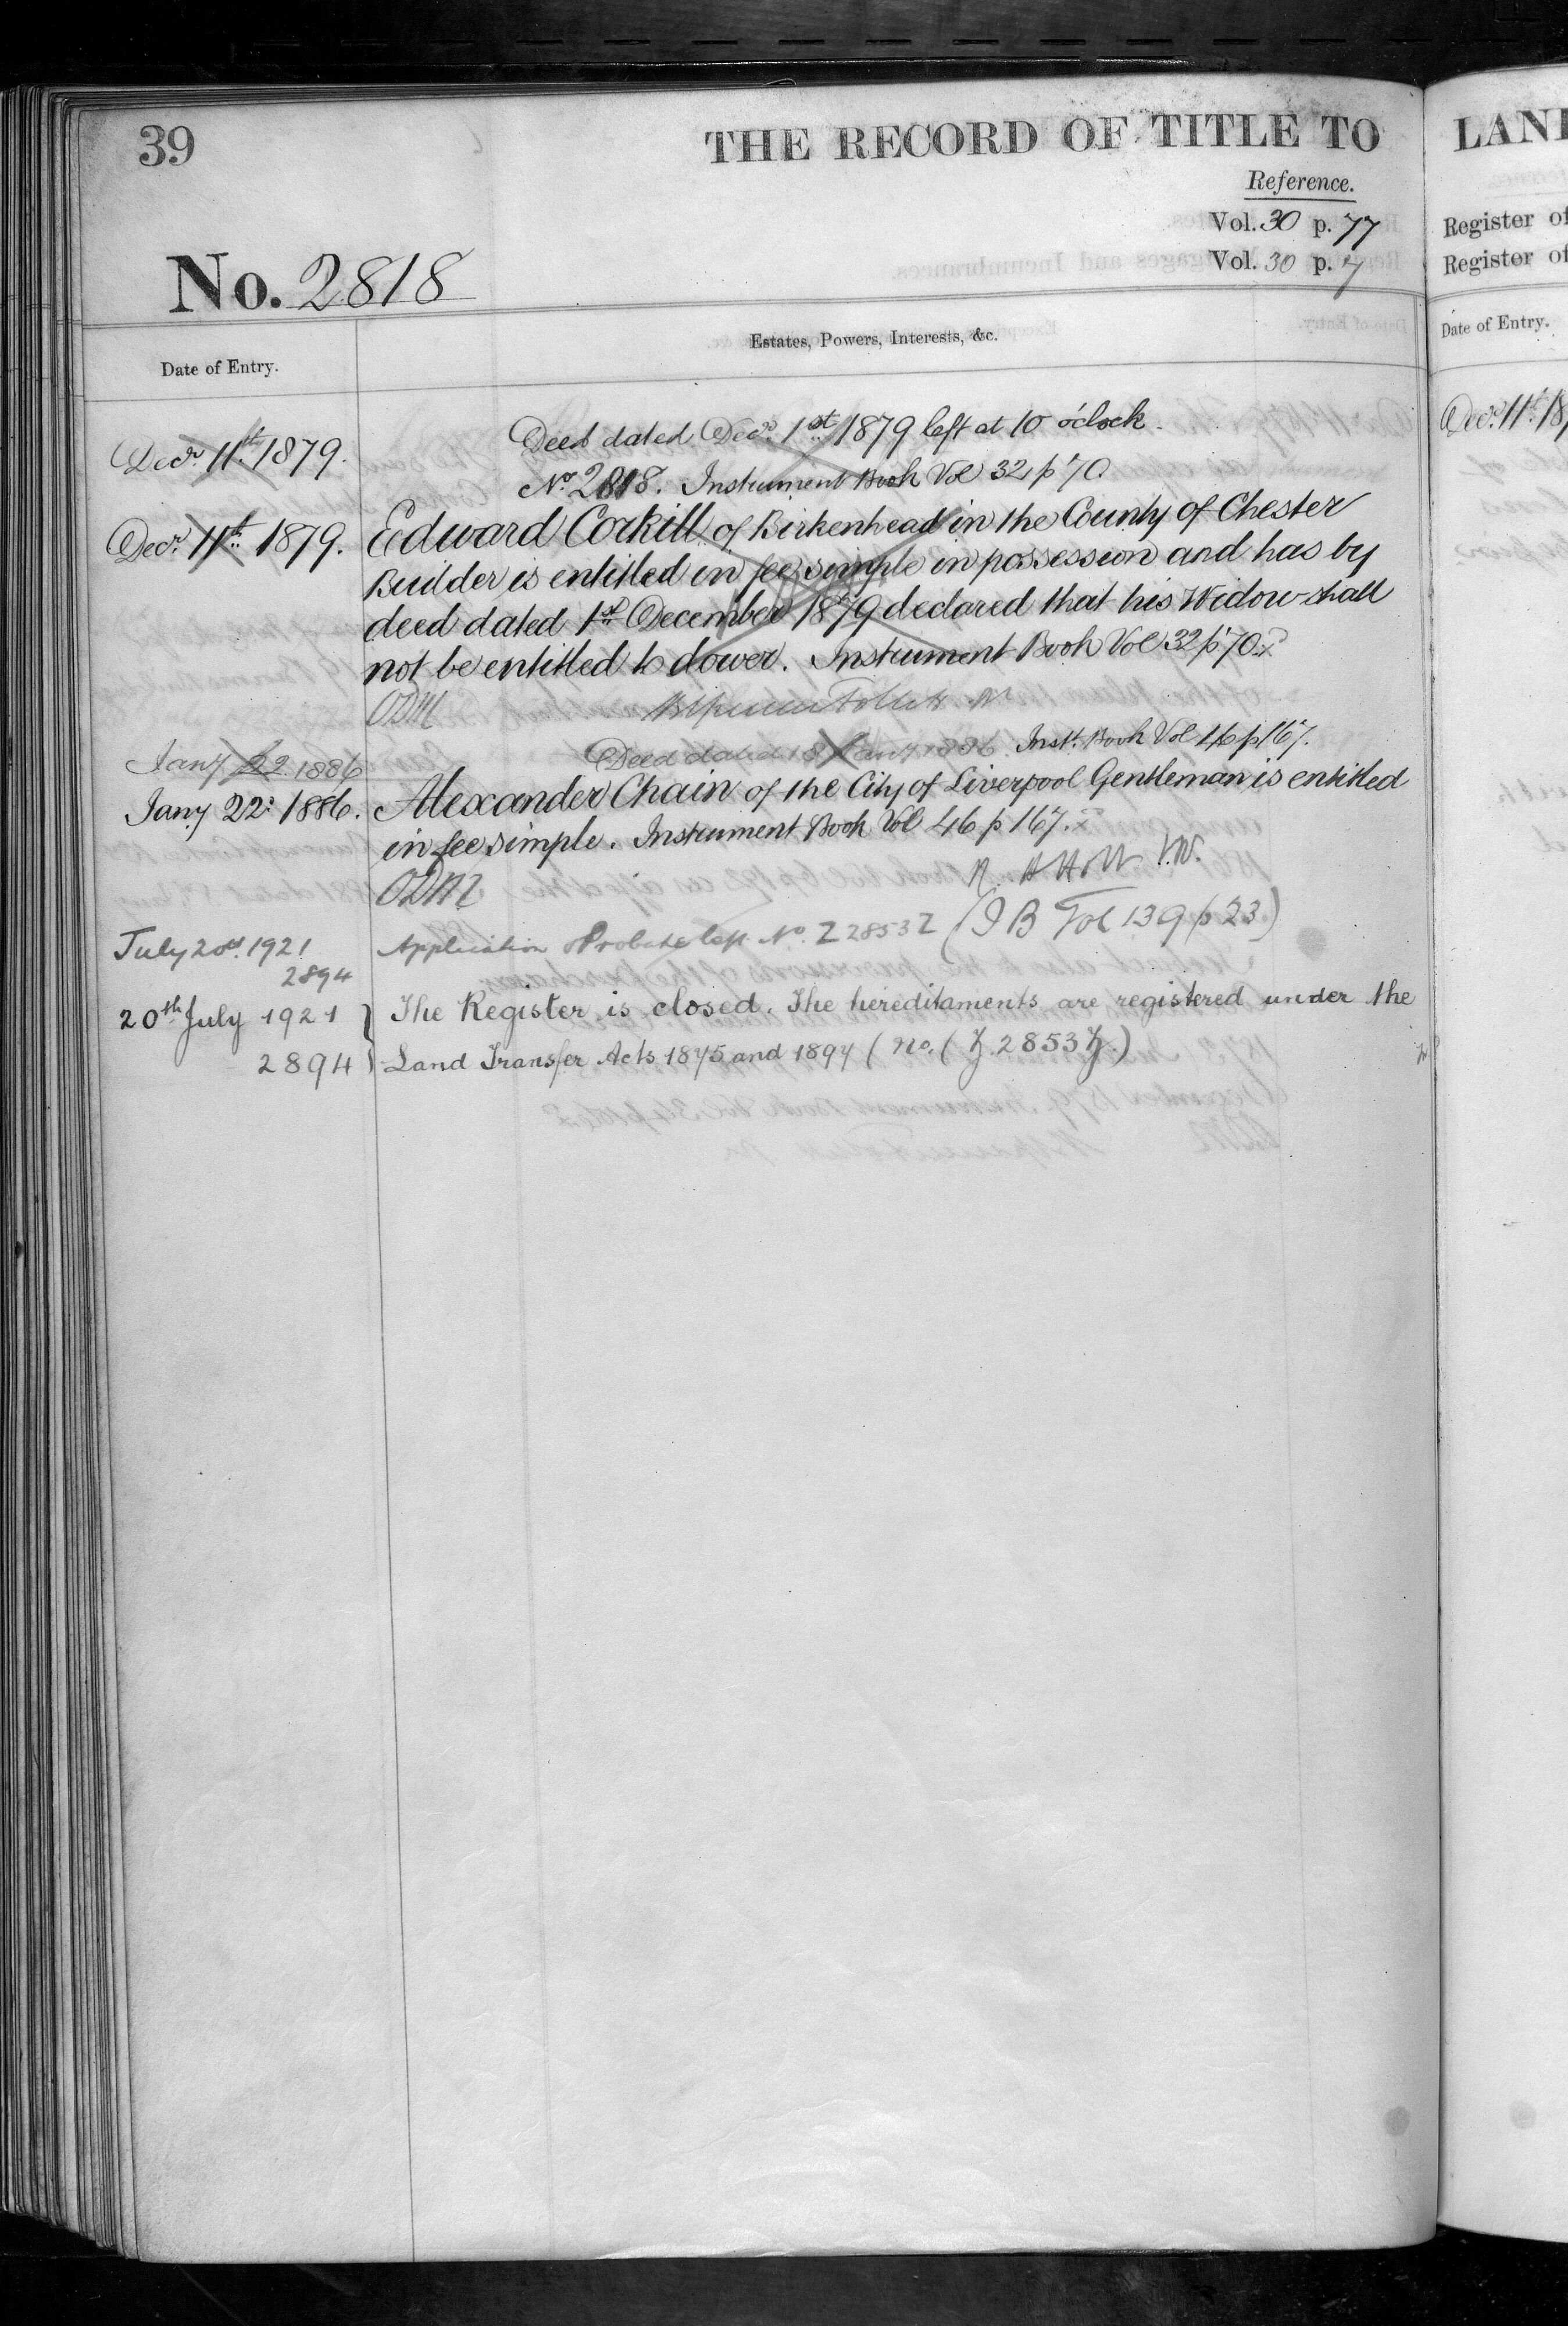 39
THE RECORD OF TITLE TO
Reference.
Vol. 30 p. 77
Vol. 30 p. 7
No. 2818
Date of Entry.
Estates, Powers, Interests, &c.
Decr. 11th 1879.
Deed dated Decr. 1st 1879 left at 10 o'clock.
No. 2818. Instrument Book Vol 32 p 70.
Decr. 11th 1879.
Edward Corkill of Birkenhead in the County of Chester
Builder is entitled in fee simple in possession and has by
deed dated 1st December 1879 declared that his Widow shall
not be entitled to dower. Instrument Book Vol 32 p 70.
ODM
Jany 22 1886
Deed dated 18 Jany 1886 Inst. Book Vol 46 p 167.
Jany 22: 1886.
Alexander Chain of the City of Liverpool Gentleman is entitled
in fee simple. Instrument Book Vol 46 p 167.
ODM
July 20th 1921
2894
Application & Probate left No. Z 2853Z (I B Vol 139 p 23)
20th July 1921
2894
The Register is closed. The hereditaments are registered under the
Land Transfer Acts 1875 and 1897 (No. (Z 2853Z.)
LAND
Register of
Register of
Date of Entry.
Decr. 11th 18